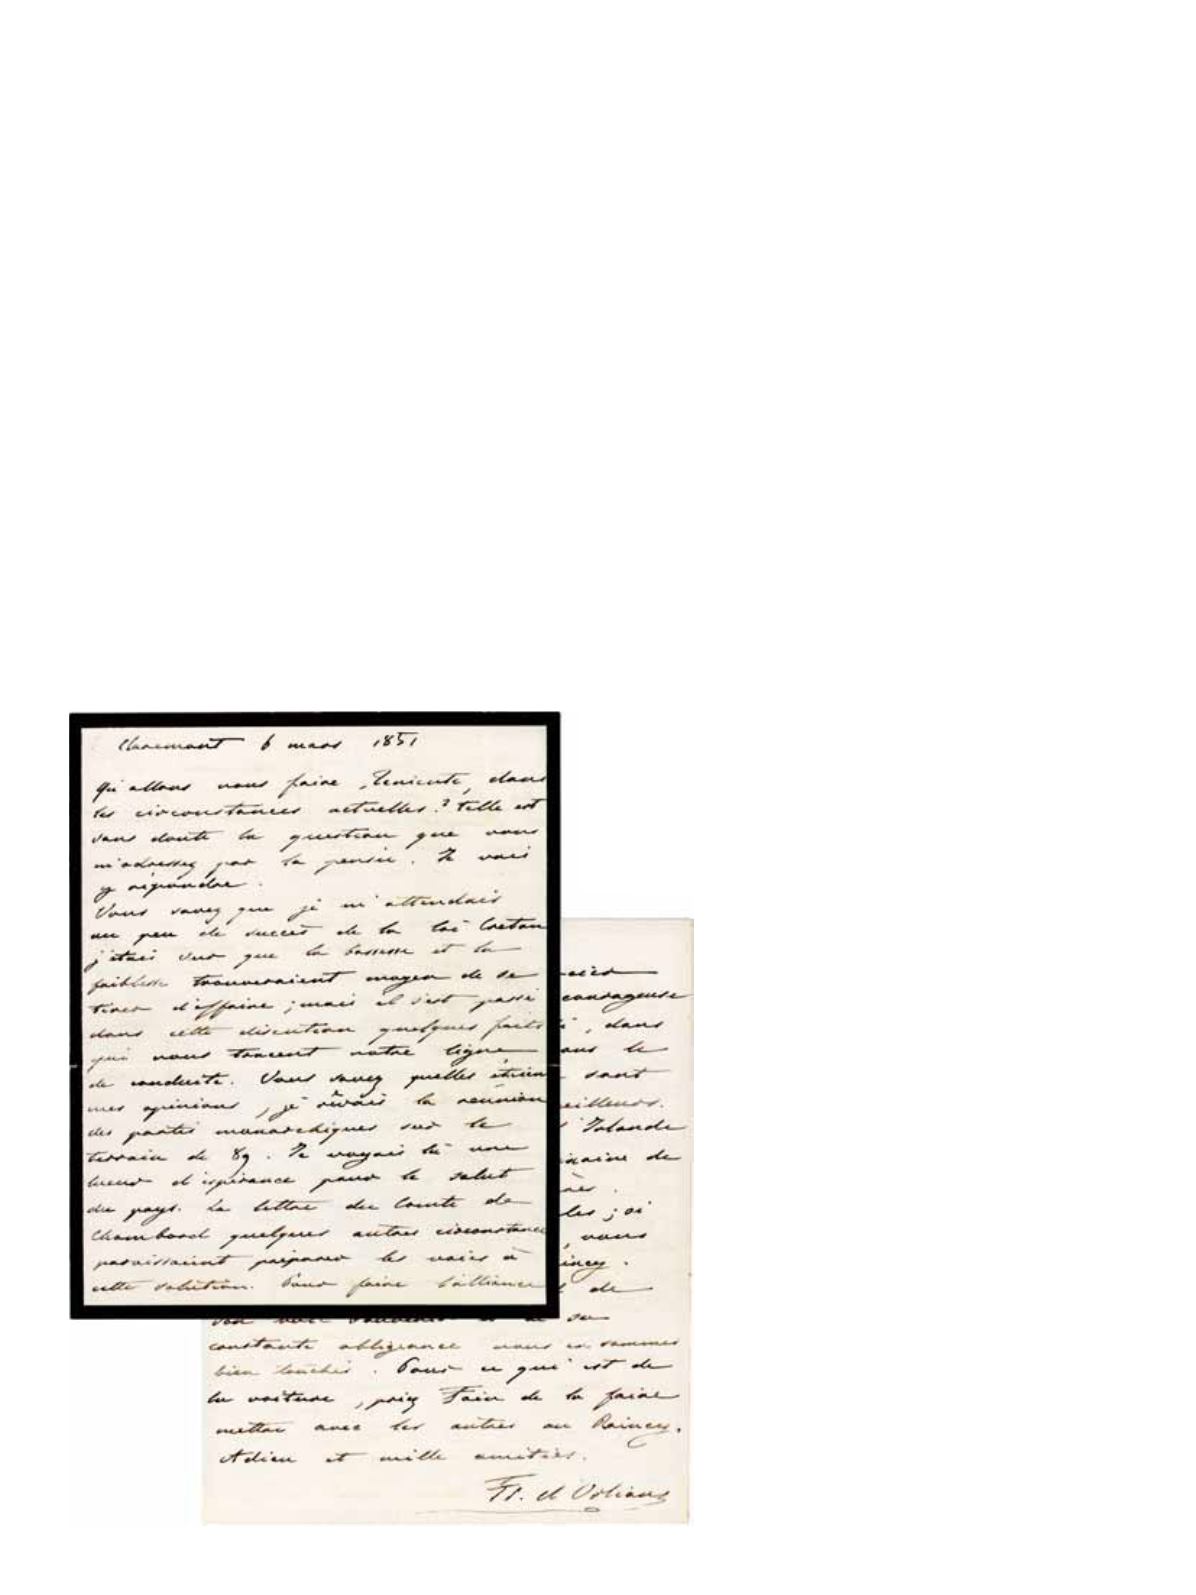 Claremont 6 mars 1851
Qu'allons nous faire, Teniente, dans
les circonstances actuelles? telle est
sans doute la question que vous
m'adressez par la pensée. Je vais
y répondre.
Vous savez que je m'attendais
au peu de succès de la loi Creton
j'étais sur que la bassesse et la
faiblesse trouveraient moyen de se
tirer d'affaire; mais il s'est passé
dans cette discution quelques faits
qui nous tracent notre ligne
de conduite. Vous savez quelles étaient
mes opinions, je rêvais la réunion
des partis monarchiques sur le
terrain de 89. Je voyais là une
lueur d'espérance pour le salut
du pays. La lettre du Comte de
Chambord quelques autres circonstances
paraissaient préparer les voies à
cette solution. Pour faire l'alliance
courageuse
, dans
le
sont
eilleurs.
Islande
de
, vous
de
son bon souvenir et de sa
constante obligeance nous en sommes
bien touchés. Pour ce qui est de
la voiture, priez Fain de la faire
mettre avec les autres au Raincy.
Adieu et mille amitiés.
Fr. d'Orléans